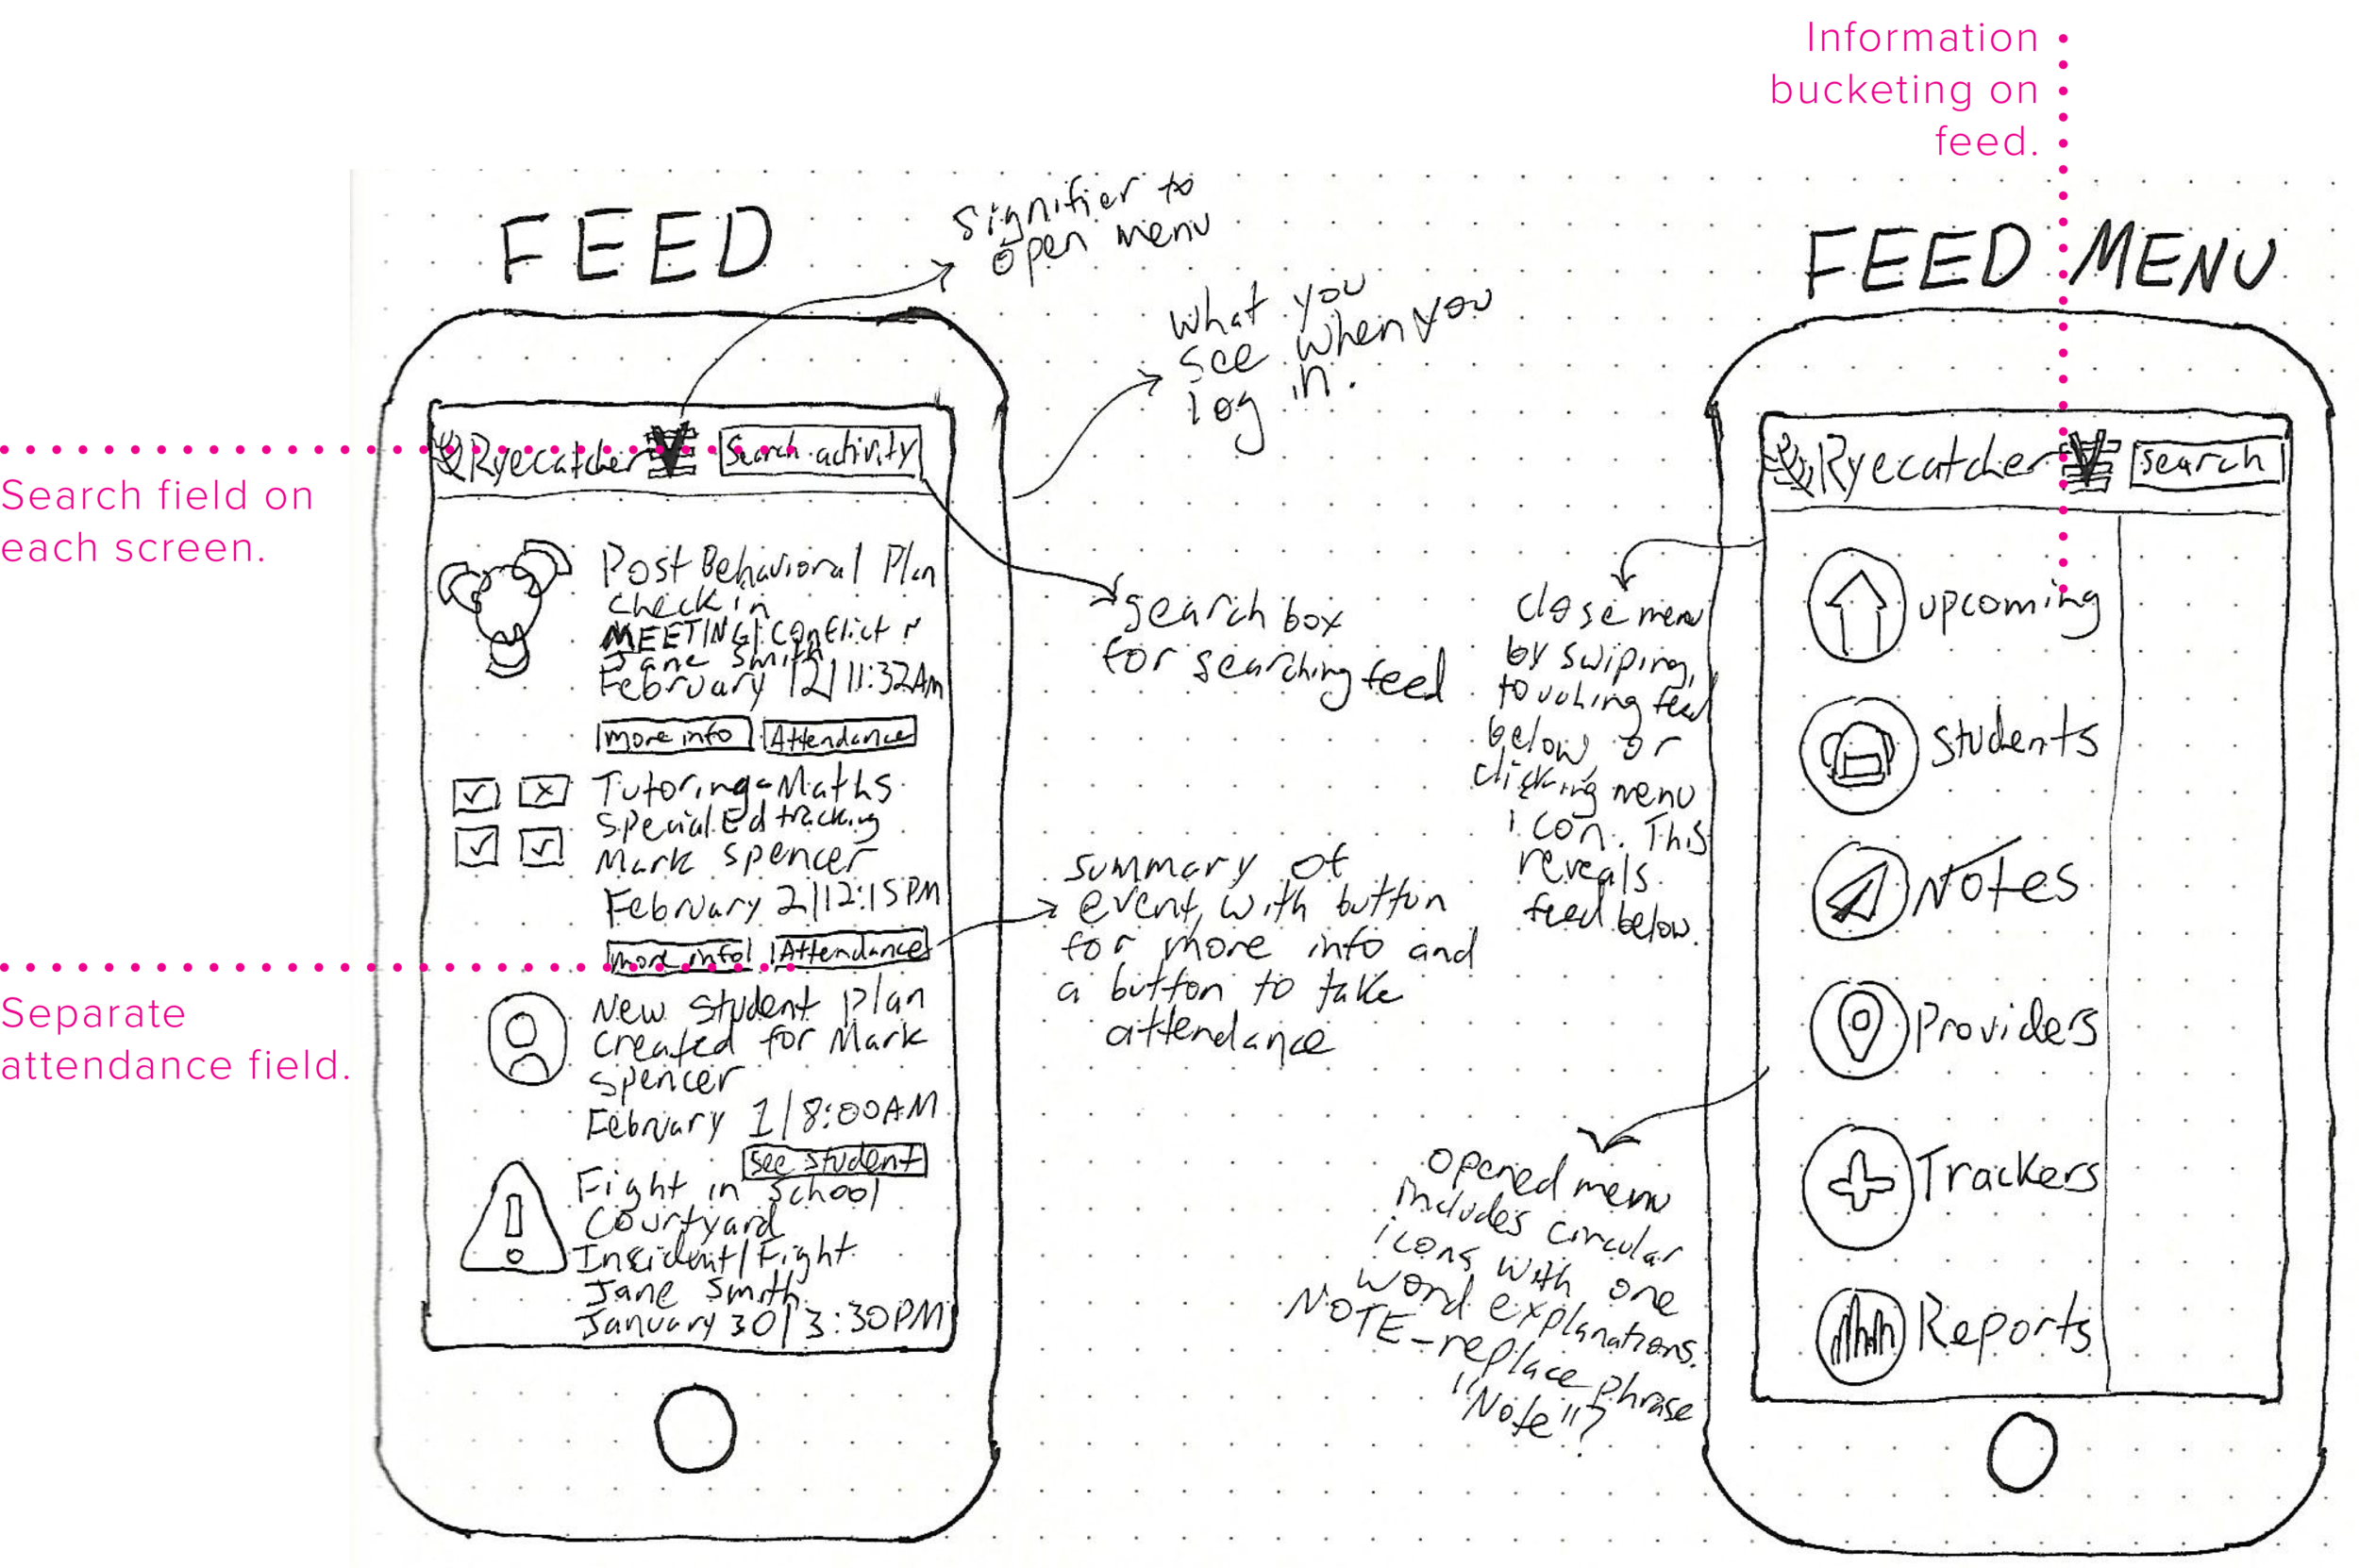 Information
bucketing on
feed.
Search field on
each screen.
Separate
attendance field.
FEED
Signifier to
open menu
what you
see when you
log in.
Ryecatcher
Search activity
Post Behavioral Plan
check in
MEETING| Conflict
Jane Smith
February 12| 11:32AM
more info
Attendance
search box
for searching feed
Tutoring-Maths
Special Ed tracking
Mark Spencer
February 2|12:15PM
more info
Attendance
summary of
event, with button
for more info and
a button to take
attendance
New student plan
created for Mark
Spencer
February 1|8:00AM
See student
Fight in School
Courtyard
Insident/Fight
Jane Smith
January 30|3:30PM
FEED MENU
Ryecatcher
search
close menu
by swiping,
touching feed
below, or
clicking menu
icon. This
reveals
feed below.
upcoming
Students
Notes
Providers
Trackers
Reports
opened menu
includes circular
icons with one
word explanations.
NOTE-replace phrase
"Note"?